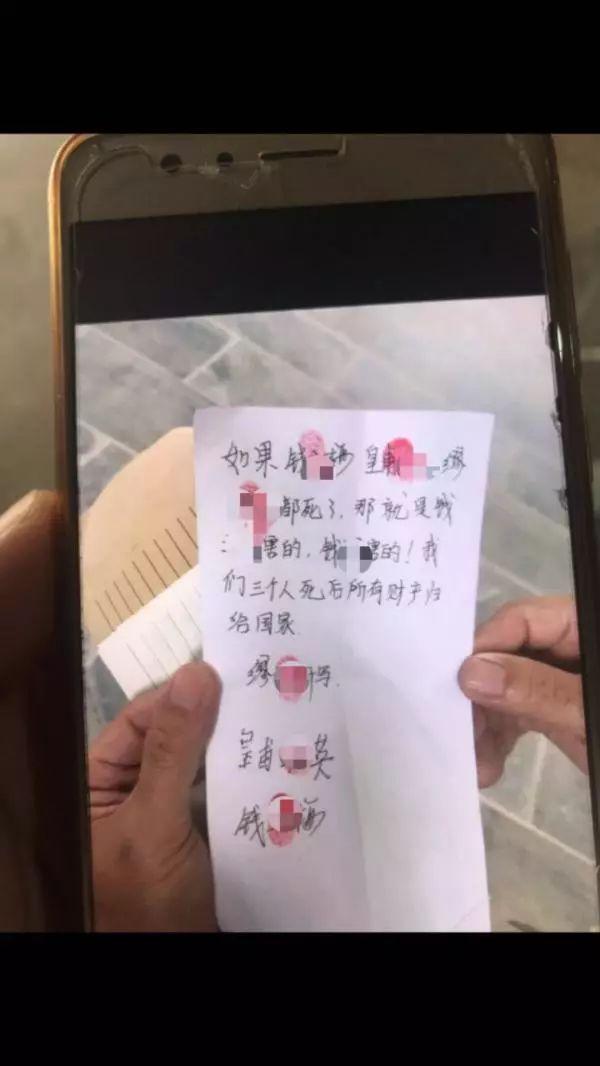 如果钱海皇甫缪
都死了，那就是钱
害的，钱害的！我
们三个人死后所有财产归
给国家.
缪写.
皇甫英
钱海